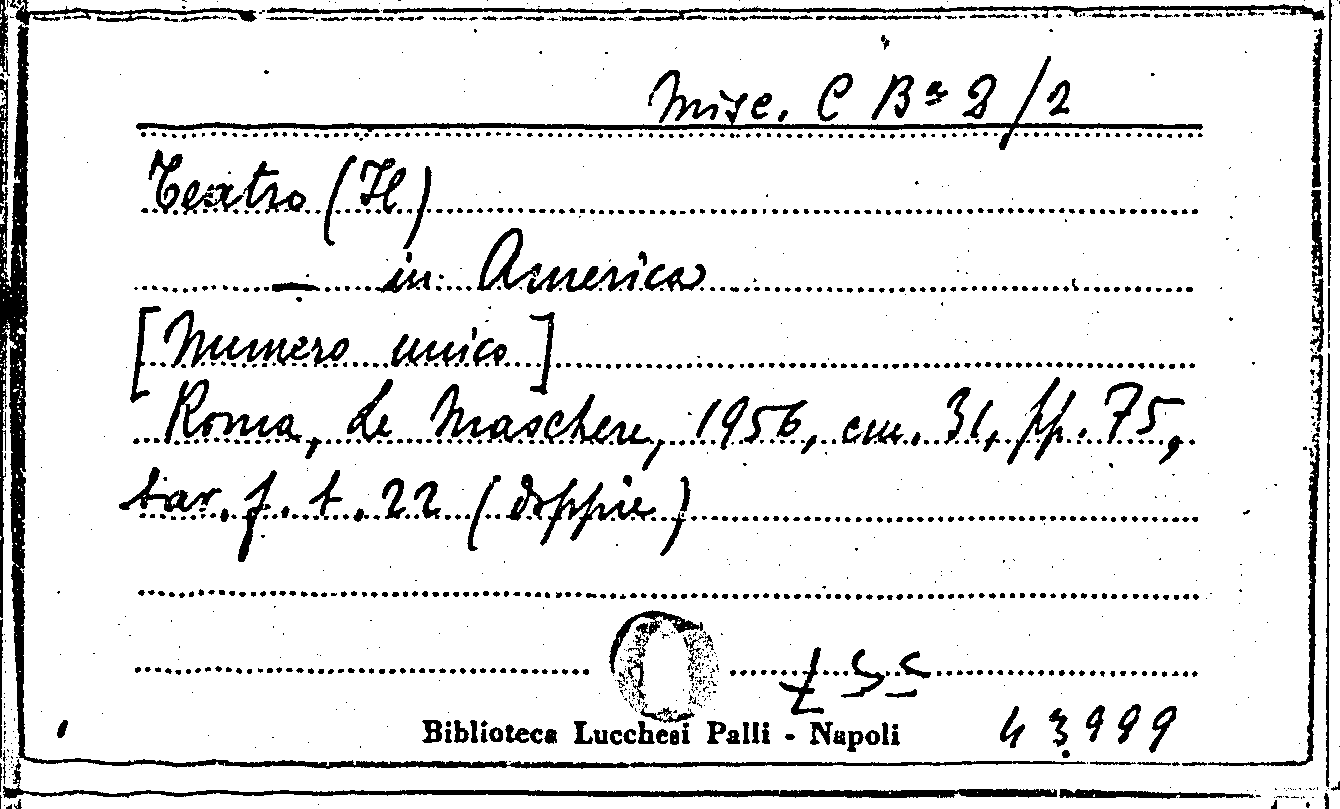 Misc. C Bª 2/2
Teatro (Il)
— in America
[Numero unico]
Roma, Le Maschere, 1956, cm. 31, pp. 75,
tav. f. t. 22 (doppie)
Biblioteca Lucchesi Palli - Napoli
43999